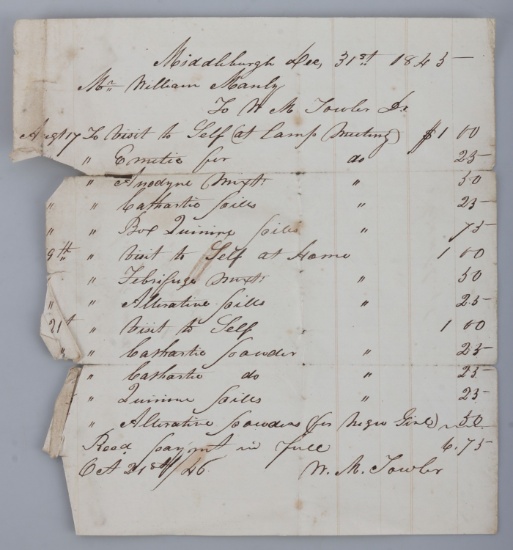 Middleburgh Dec, 31st 1845
Mr William Manly
To W M Towler Dr
Augst 17 To Visit to Self (at Camp Meeting) $1 00
" Emetic for do 25
" Anodyne Mixtr " 50
" " Cathartic pills " 25
" " Box Quinine pills " 75
9th " Visit to Self at Home 1 00
" Febrifuge Mixtr " 50
" Alterative pills " 25
21st " Visit to Self 1 00
" " Cathartic powder " 25
" Cathartic do " 25
" Quinine pills " 25
" Alterative powders (for Negro Girl) 50
Recd paymt in full 6.75
Oct 21st/46 W. M. Towler